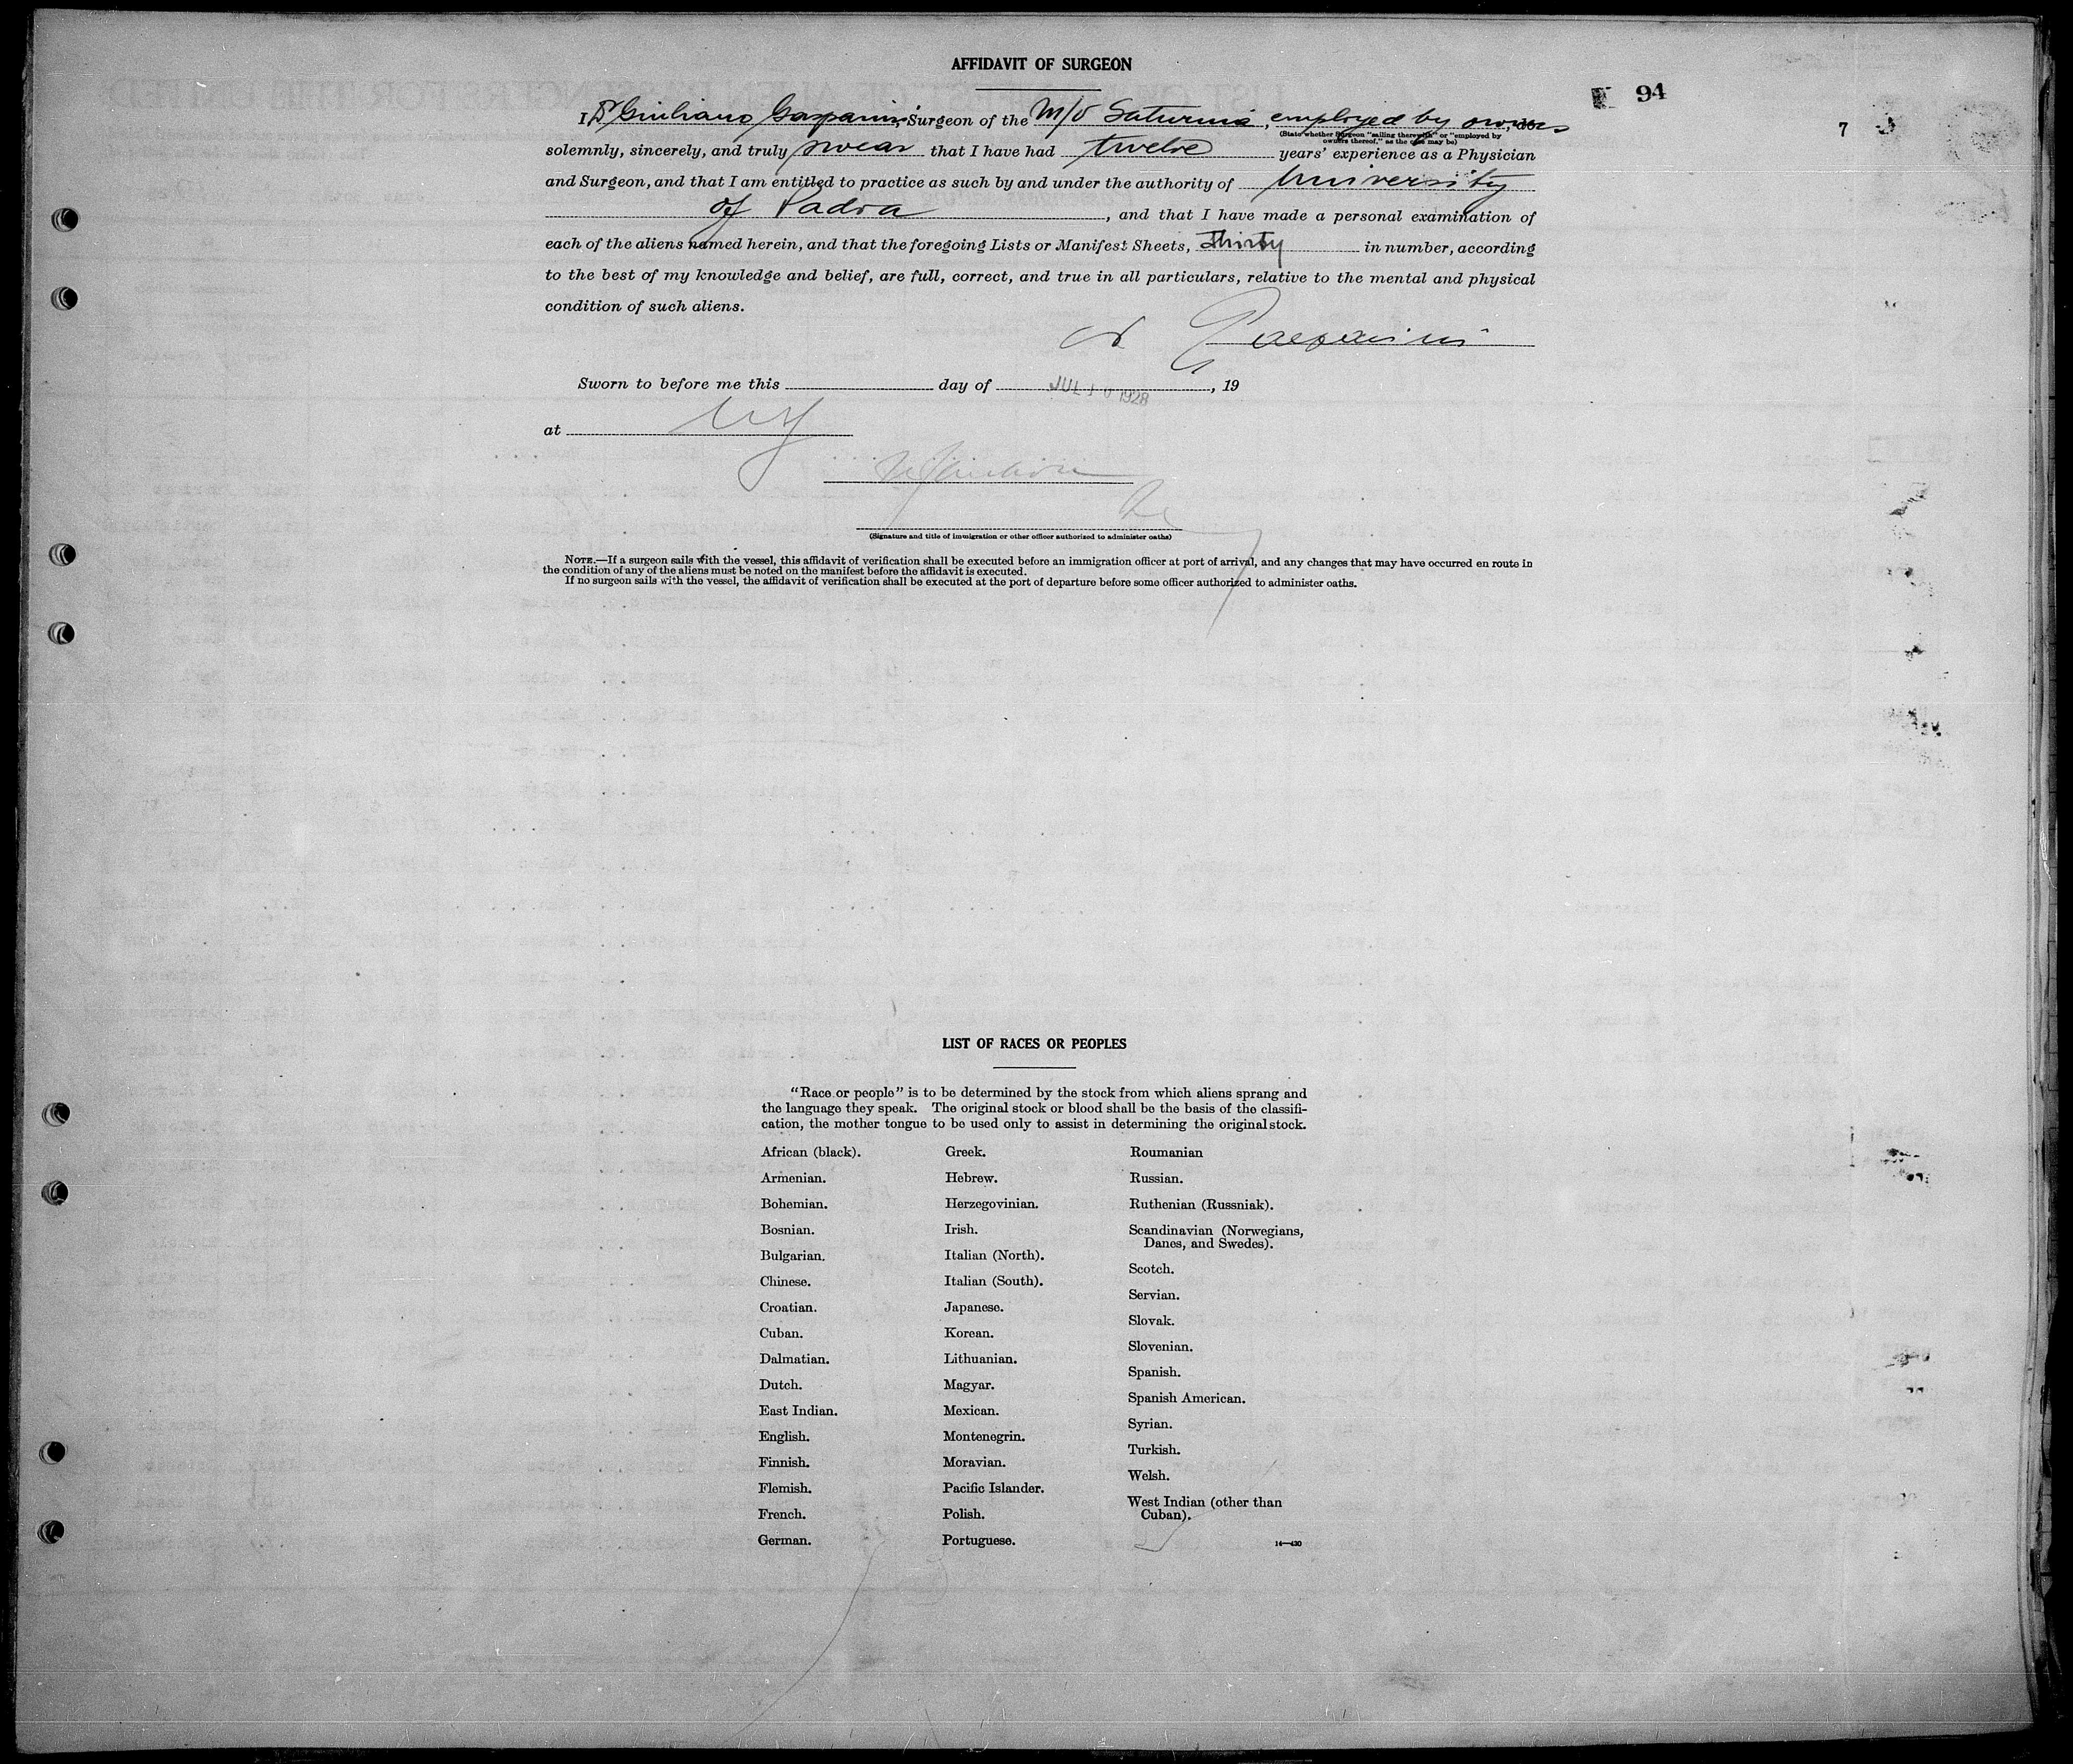 AFFIDAVIT OF SURGEON
94
7
I, Dr Giuliano Gasparini, Surgeon of the M/V Saturnia, employed by owners, do
(State whether Surgeon "sailing therewith" or "employed by
owners thereof," as the case may be)
solemnly, sincerely, and truly swear that I have had twelve years' experience as a Physician
and Surgeon, and that I am entitled to practice as such by and under the authority of University
of Padva, and that I have made a personal examination of
each of the aliens named herein, and that the foregoing Lists or Manifest Sheets, Thirty in number, according
to the best of my knowledge and belief, are full, correct, and true in all particulars, relative to the mental and physical
condition of such aliens.
Dr Gasparini
Sworn to before me this day of JUL 10 1928, 19
at NY
(Signature and title of immigration or other officer authorized to administer oaths)
NOTE.—If a surgeon sails with the vessel, this affidavit of verification shall be executed before an immigration officer at port of arrival, and any changes that may have occurred en route in
the condition of any of the aliens must be noted on the manifest before the affidavit is executed.
If no surgeon sails with the vessel, the affidavit of verification shall be executed at the port of departure before some officer authorized to administer oaths.
LIST OF RACES OR PEOPLES
"Race or people" is to be determined by the stock from which aliens sprang and
the language they speak. The original stock or blood shall be the basis of the classifi-
cation, the mother tongue to be used only to assist in determining the original stock.
African (black).
Armenian.
Bohemian.
Bosnian.
Bulgarian.
Chinese.
Croatian.
Cuban.
Dalmatian.
Dutch.
East Indian.
English.
Finnish.
Flemish.
French.
German.
Greek.
Hebrew.
Herzegovinian.
Irish.
Italian (North).
Italian (South).
Japanese.
Korean.
Lithuanian.
Magyar.
Mexican.
Montenegrin.
Moravian.
Pacific Islander.
Polish.
Portuguese.
Roumanian
Russian.
Ruthenian (Russniak).
Scandinavian (Norwegians,
Danes, and Swedes).
Scotch.
Servian.
Slovak.
Slovenian.
Spanish.
Spanish American.
Syrian.
Turkish.
Welsh.
West Indian (other than
Cuban).
14—430